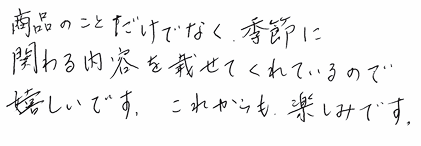 商品のことだけでなく、季節に
関わる内容を載せてくれているので
嬉しいです。これからも、楽しみです。